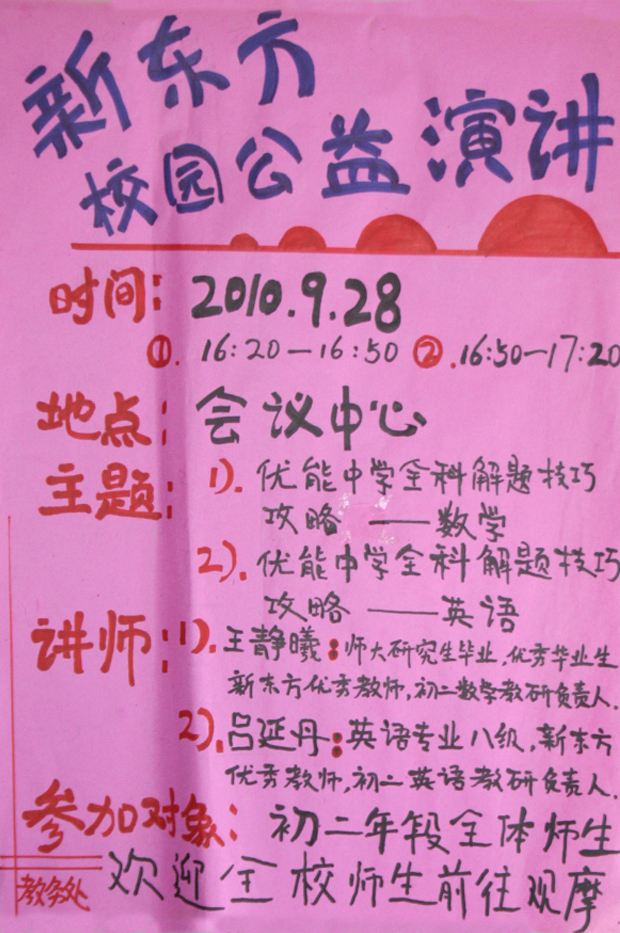 新东方
校园公益演讲
时间：2010.9.28
①. 16:20—16:50 ②. 16:50—17:20
地点：会议中心
主题：1). 优能中学全科解题技巧
攻略 ——数学
2). 优能中学全科解题技巧
攻略 ——英语
讲师：1). 王静曦：师大研究生毕业,优秀毕业生
新东方优秀教师,初二数学教研负责人.
2). 吕延丹：英语专业八级,新东方
优秀教师,初二英语教研负责人.
参加对象：初二年段全体师生
欢迎全校师生前往观摩
教务处